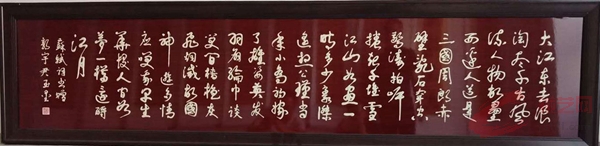 大江东去浪
淘尽千古风
流人物故垒
西边人道是
三國周郎赤
壁乱石穿空
惊涛拍岸
捲起千堆雪
江山如画一
时多少豪傑
遥想公瑾当
年小乔初嫁
了雄姿英发
羽扇纶巾谈
笑间樯橹灰
飞烟灭故國
神游多情
应笑我早生
華髮人间如
梦一樽还酹
江月
苏轼词书赠